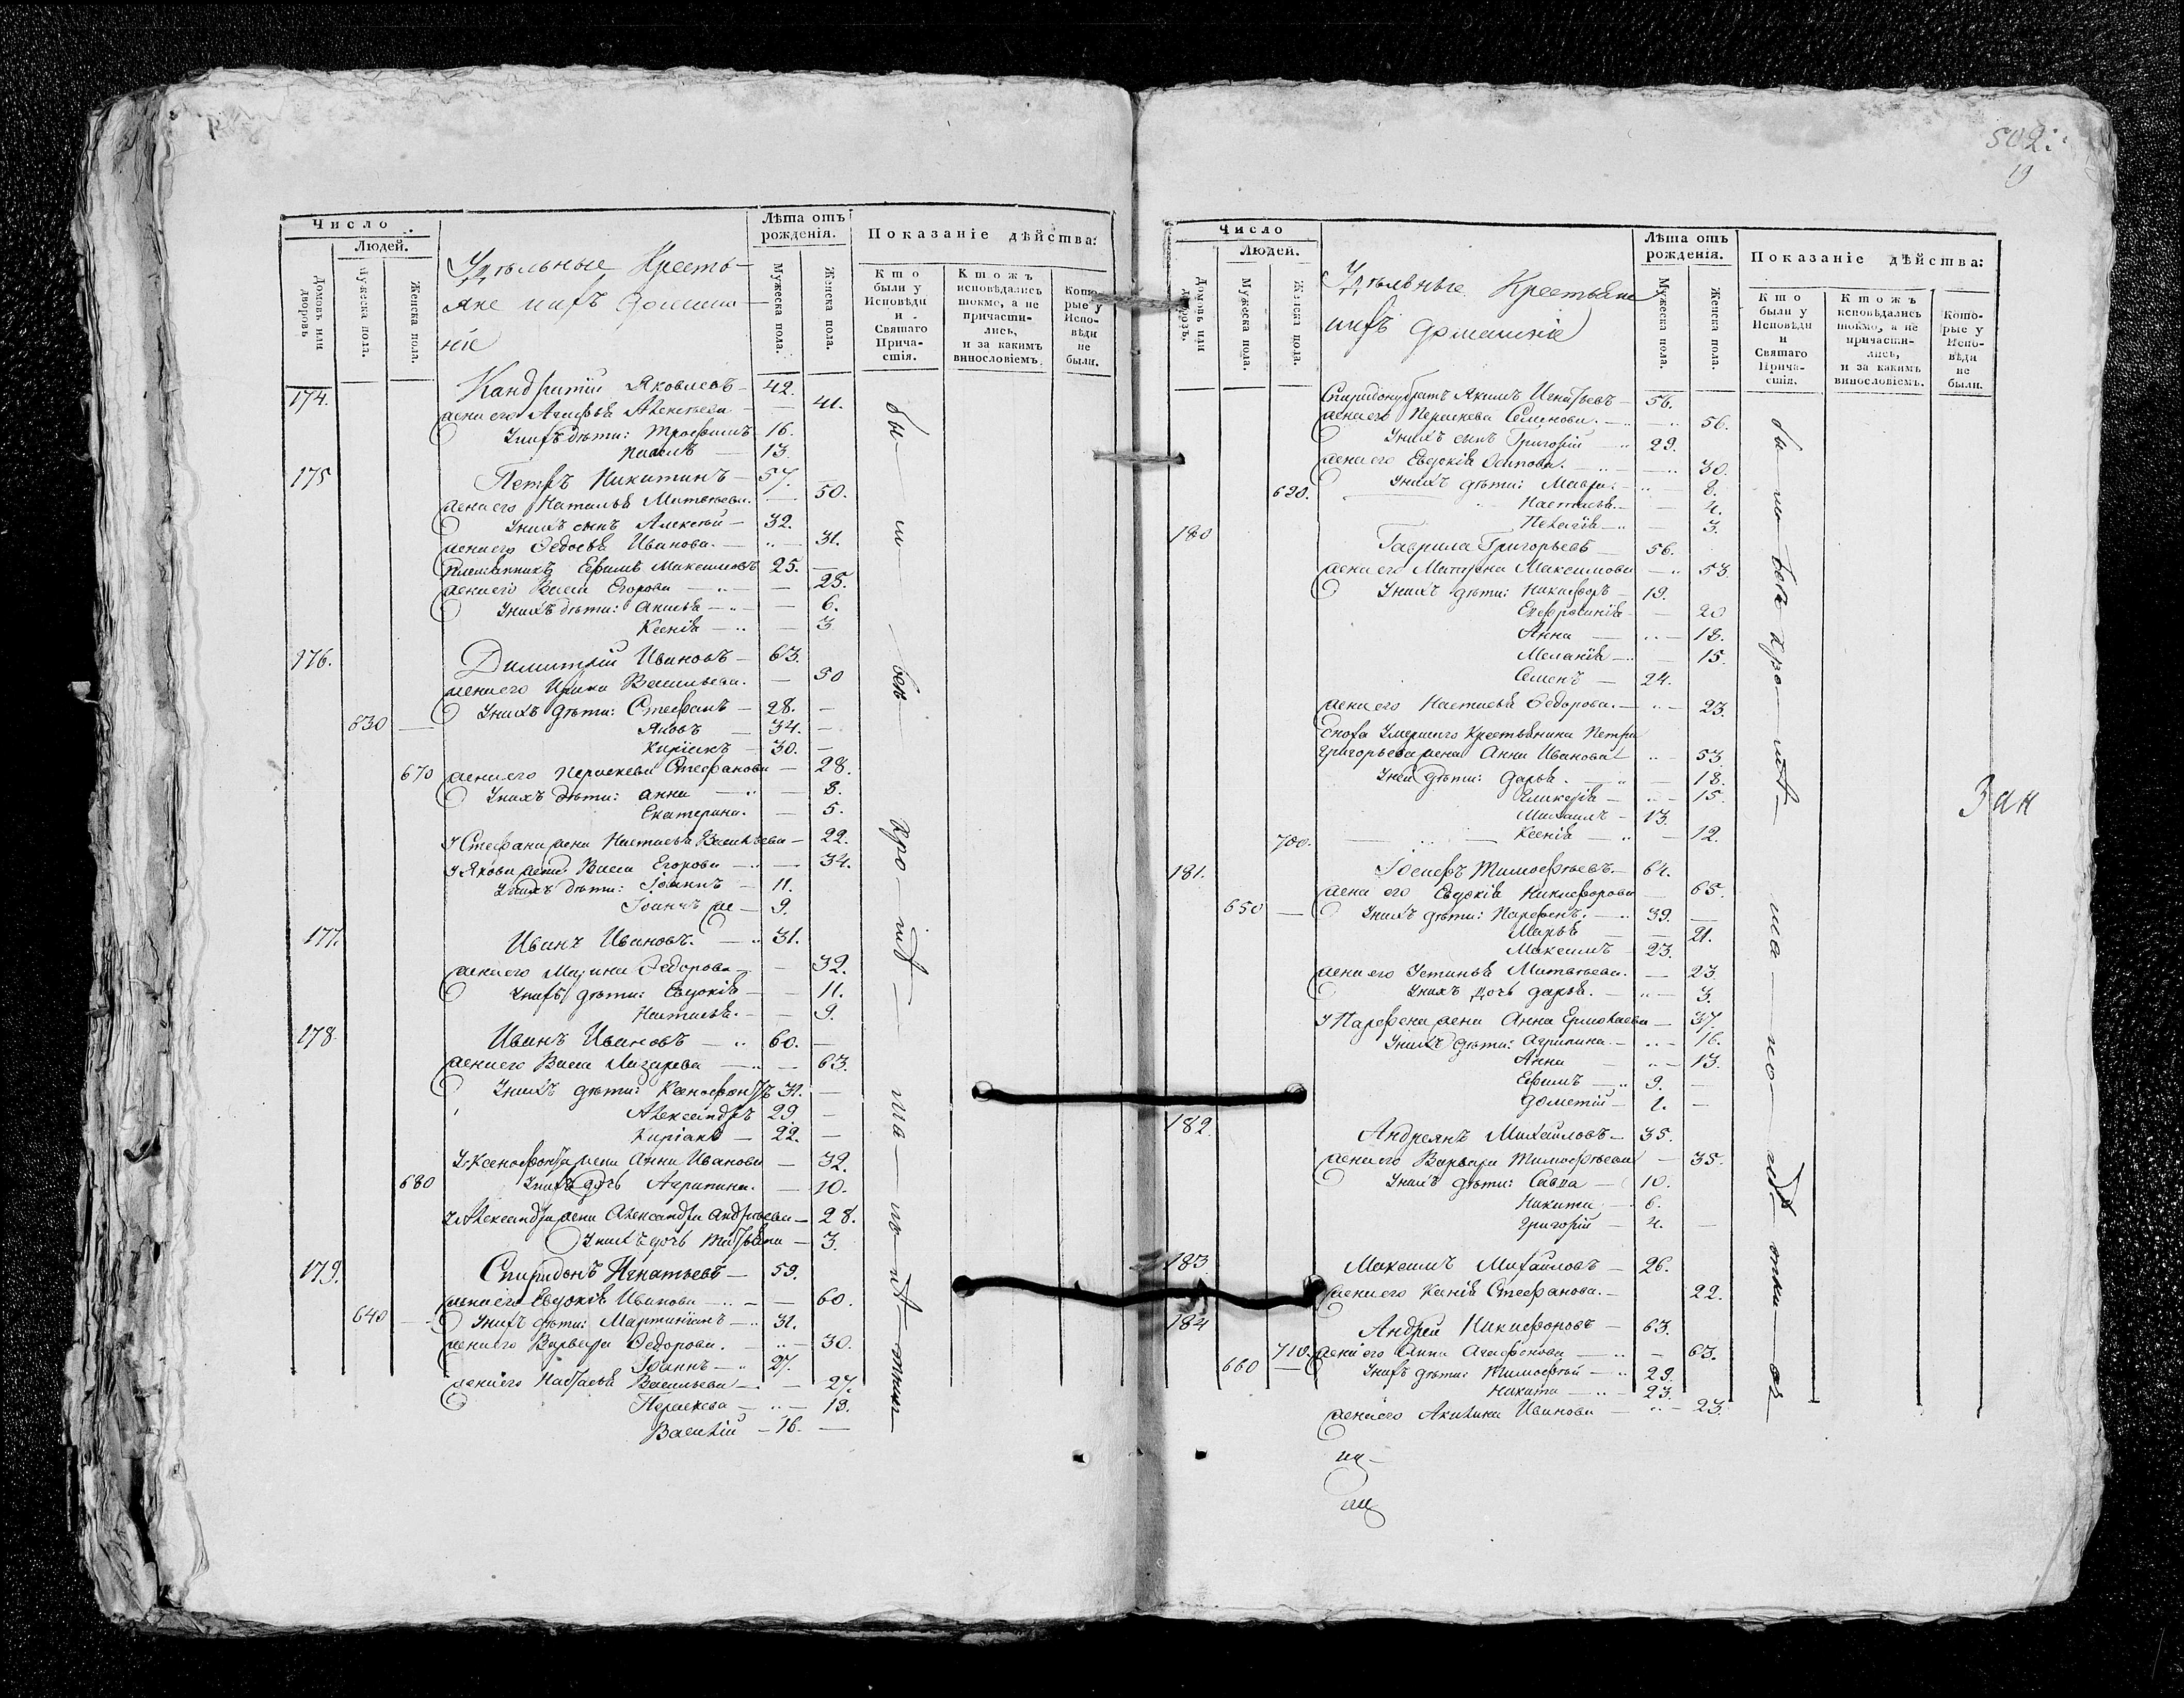 Число
Людей.
Домовъ или дворовъ
Мужеска пола.
Женска пола.
Удѣльные Кресть-
яне ихъ домаш-
ніе
Лѣта отъ
рожденія.
Мужеска пола.
Женска пола.
Показаніе дѣйства:
Кто
были у
Исповѣди
и
Святаго
Прича-
стія.
Ктожъ
исповѣдались
токмо, а не
причасти-
лись,
и за какимъ
винословіемъ.
Кото-
рые у
Испо-
вѣди
не
были.
174. Кандратій Яковлевъ — 42.
жена его Агафья Алексѣева — 41.
У нихъ дѣти: Трофимъ 16.
Павелъ — 13.
175 Петръ Никитинъ — 57.
жена его Наталья Матвѣева. — 50.
У нихъ сынъ Алексѣй — 32.
жена его Ѳедосья Иванова. — 31.
племянникъ Ефимъ Максимовъ 25. —
жена его Васса Егорова — 25.
У нихъ дѣти: Акилина — 6.
Ксенія — 3
176. Димитрій Ивановъ — 63.
жена его Ирина Васильева. — 50
У нихъ дѣти: Стефанъ — 28. —
630 — Яковъ — 34. —
Киріакъ — 30. —
670 жена его Параскева Стефанова — 28.
У нихъ дѣти: Анна — 8.
Екатерина. — 5.
У Стефана жена Настасья Васильева — 22.
У Якова жена Васса Егорова — 34.
У нихъ дѣти: Іоаннъ — 11.
Іоаннъ же — 9.
177. Иванъ Ивановъ. — 31.
жена его Марина Ѳедорова — 32.
У нихъ дѣти: Евдокія — 11.
Настасья. — 9.
178 Иванъ Ивановъ — 60. —
жена его Васса Лазарева — 63.
У нихъ дѣти: Ксенофонтъ 31. —
Александръ 29 —
Киріакъ — 22. —
У Ксенофонта жена Анна Иванова — 32.
680 У нихъ дочь Агрипина. — 10.
У Александра жена Александра Андреева — 28.
У нихъ дочь Татьяна — 3.
179. Спиридонъ Игнатьевъ — 59.
жена его Евдокія Иванова — 60.
640 — У нихъ дѣти: Мартиніанъ — 31.
жена его Варвара Ѳедорова. — 30.
Іоаннъ — 27.
жена его Настасья Васильева — 27.
Параскева — 18.
Василій — 16. —
502.
19
Число
Людей.
Домовъ или дворовъ
Мужеска пола.
Женска пола.
Удѣльные Крестьяне
ихъ домашніе
Лѣта отъ
рожденія.
Мужеска пола.
Женска пола.
Показаніе дѣйства:
Кто
были у
Исповѣди
и
Святаго
Прича-
стія.
Ктожъ
исповѣдались
токмо, а не
причасти-
лись,
и за какимъ
винословіемъ.
Кото-
рые у
Испо-
вѣди
не
были.
Спиридону братъ Якимъ Игнатьевъ — 56.
жена его Параскева Семенова. — 56.
У нихъ сынъ Григорій — 29.
жена его Евдокія Осипова. — 30.
У нихъ дѣти: Мавра. — 8.
690. Настасья. — 4.
Пелагія — 3.
180 Гаврила Григорьевъ — 56.
жена его Матрена Максимова — 53.
У нихъ дѣти: Никифоръ — 19.
Евфросинія — 20
Анна — 18.
Меланія — 15.
Семенъ — 24.
жена его Настасья Ѳедорова. — 23.
Сноха Умершаго Крестьянина Петра
Григорьева жена Анна Иванова — 53.
У ней дѣти: Дарья. — 18.
Гликерія — 15.
Михаилъ — 13.
700. Ксенія — 12.
181. Іосифъ Тимофѣевъ — 64.
жена его Евдокія Никифорова — 65.
650 — У нихъ дѣти: Парфенъ. — 39. —
Марья — 21.
Максимъ — 23.
жена его Устинья Матвѣева. — 23
У нихъ дочь Дарья. — 3.
У Парфена жена Анна Ермолаева — 37.
У нихъ дѣти: Агрипина. — 16.
Анна — 13.
Ефимъ — 9. —
Дометій — 1. —
182. Андреянъ Михайловъ — 35.
жена его Варвара Тимофѣева — 35.
У нихъ дѣти: Савва — 10.
Никита — 6.
Григорій — 4. —
183 Максимъ Михайловъ — 26.
жена его Ксенія Стефанова. — 22.
184 Андрей Никифоровъ — 63.
710. жена его Анна Агафонова — 63.
660 — У нихъ дѣти: Тимофѣй — 29.
Никита — 23.
жена его Акилина Иванова — 23.